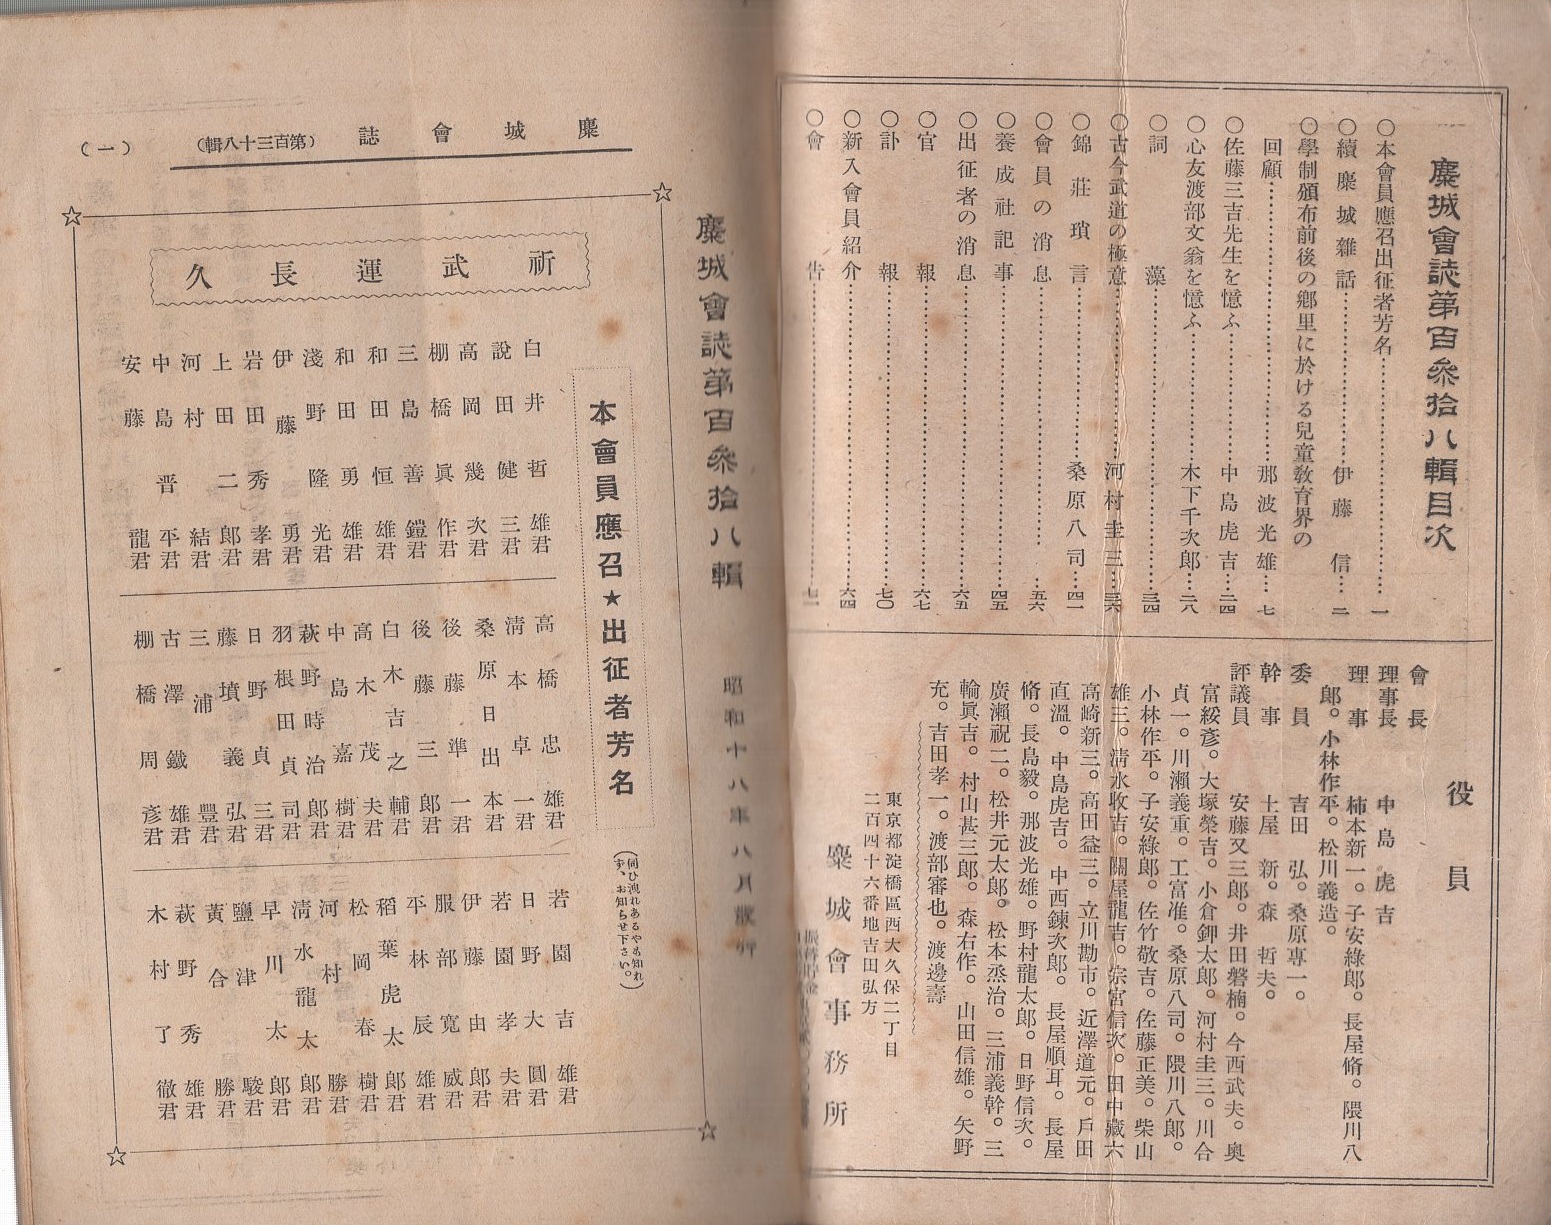 麋城會誌第百參拾八輯目次
〇本會員應召出征者芳名…………一
〇續麋城雜話…………伊藤信…二
〇學制頒布前後の鄕里に於ける兒童敎育界の
回顧…………那波光雄…七
〇佐藤三吉先生を憶ふ…………中島虎吉…二四
〇心友渡部文翁を憶ふ…………木下千次郎…二八
〇詞藻…………三四
〇古今武道の極意…………河村圭三…三六
〇錦莊瑣言…………桑原八司…四一
〇會員の消息…………五六
〇養成社記事…………四五
〇出征者の消息…………六五
〇官報…………六七
〇訃報…………七〇
〇新入會員紹介…………六四
〇會告…………七一
役員
會長
理事長 中島虎吉
理事 柿本新一。子安綠郎。長屋脩。隈川八
郎。小林作平。松川義造。
委員 吉田弘。桑原專一。
幹事 土屋新。森哲夫。
評議員 安藤又三郎。井田磐楠。今西武夫。奥
富綏彥。大塚榮吉。小倉鉀太郎。河村圭三。川合
貞一。川瀨義重。工富准。桑原八司。隈川八郎。
小林作平。子安綠郎。佐竹敬吉。佐藤正美。柴山
雄三。淸水收吉。關屋龍吉。宗宮信次。田中藏六
高崎新三。高田益三。立川勘市。近澤道元。戶田
直溫。中島虎吉。中西鍊次郎。長屋順耳。長屋
脩。長島毅。那波光雄。野村龍太郎。日野信次。
廣瀨祝二。松井元太郎。松本烝治。三浦義幹。三
輪眞吉。村山甚三郎。森右作。山田信雄。矢野
充。吉田孝一。渡部審也。渡邊壽
東京都淀橋區西大久保二丁目
二百四十六番地吉田弘方
麋城會事務所
麋城會誌第百參拾八輯
昭和十八年八月發行
麋城會誌 (第百三十八輯) (一)
祈武運長久
本會員應召★出征者芳名
(伺ひ洩れあるやも知れ
ず、お知らせ下さい。)
白井哲雄君
說田健三君
高岡幾次君
棚橋眞作君
三島善鎧君
和田恒雄君
和田勇雄君
淺野隆光君
伊藤勇君
岩田秀孝君
上田二郎君
河村結君
中島晋平君
安藤龍君
高橋忠雄君
淸本卓一君
桑原日出本君
後藤準一君
後藤三郎君
白木吉之輔君
高木茂夫君
中島嘉樹君
萩野時治郎君
羽根田貞司君
日野貞三君
藤墳義弘君
三浦豐君
古澤鐵雄君
棚橋周彥君
若園吉雄君
日野大圓君
若園孝夫君
伊藤由郎君
服部寬威君
平林辰雄君
稻葉虎太郎君
松岡春樹君
河村勝君
淸水龍太郎君
早川太郎君
鹽津駿君
黃合勝君
萩野秀雄君
木村了徹君